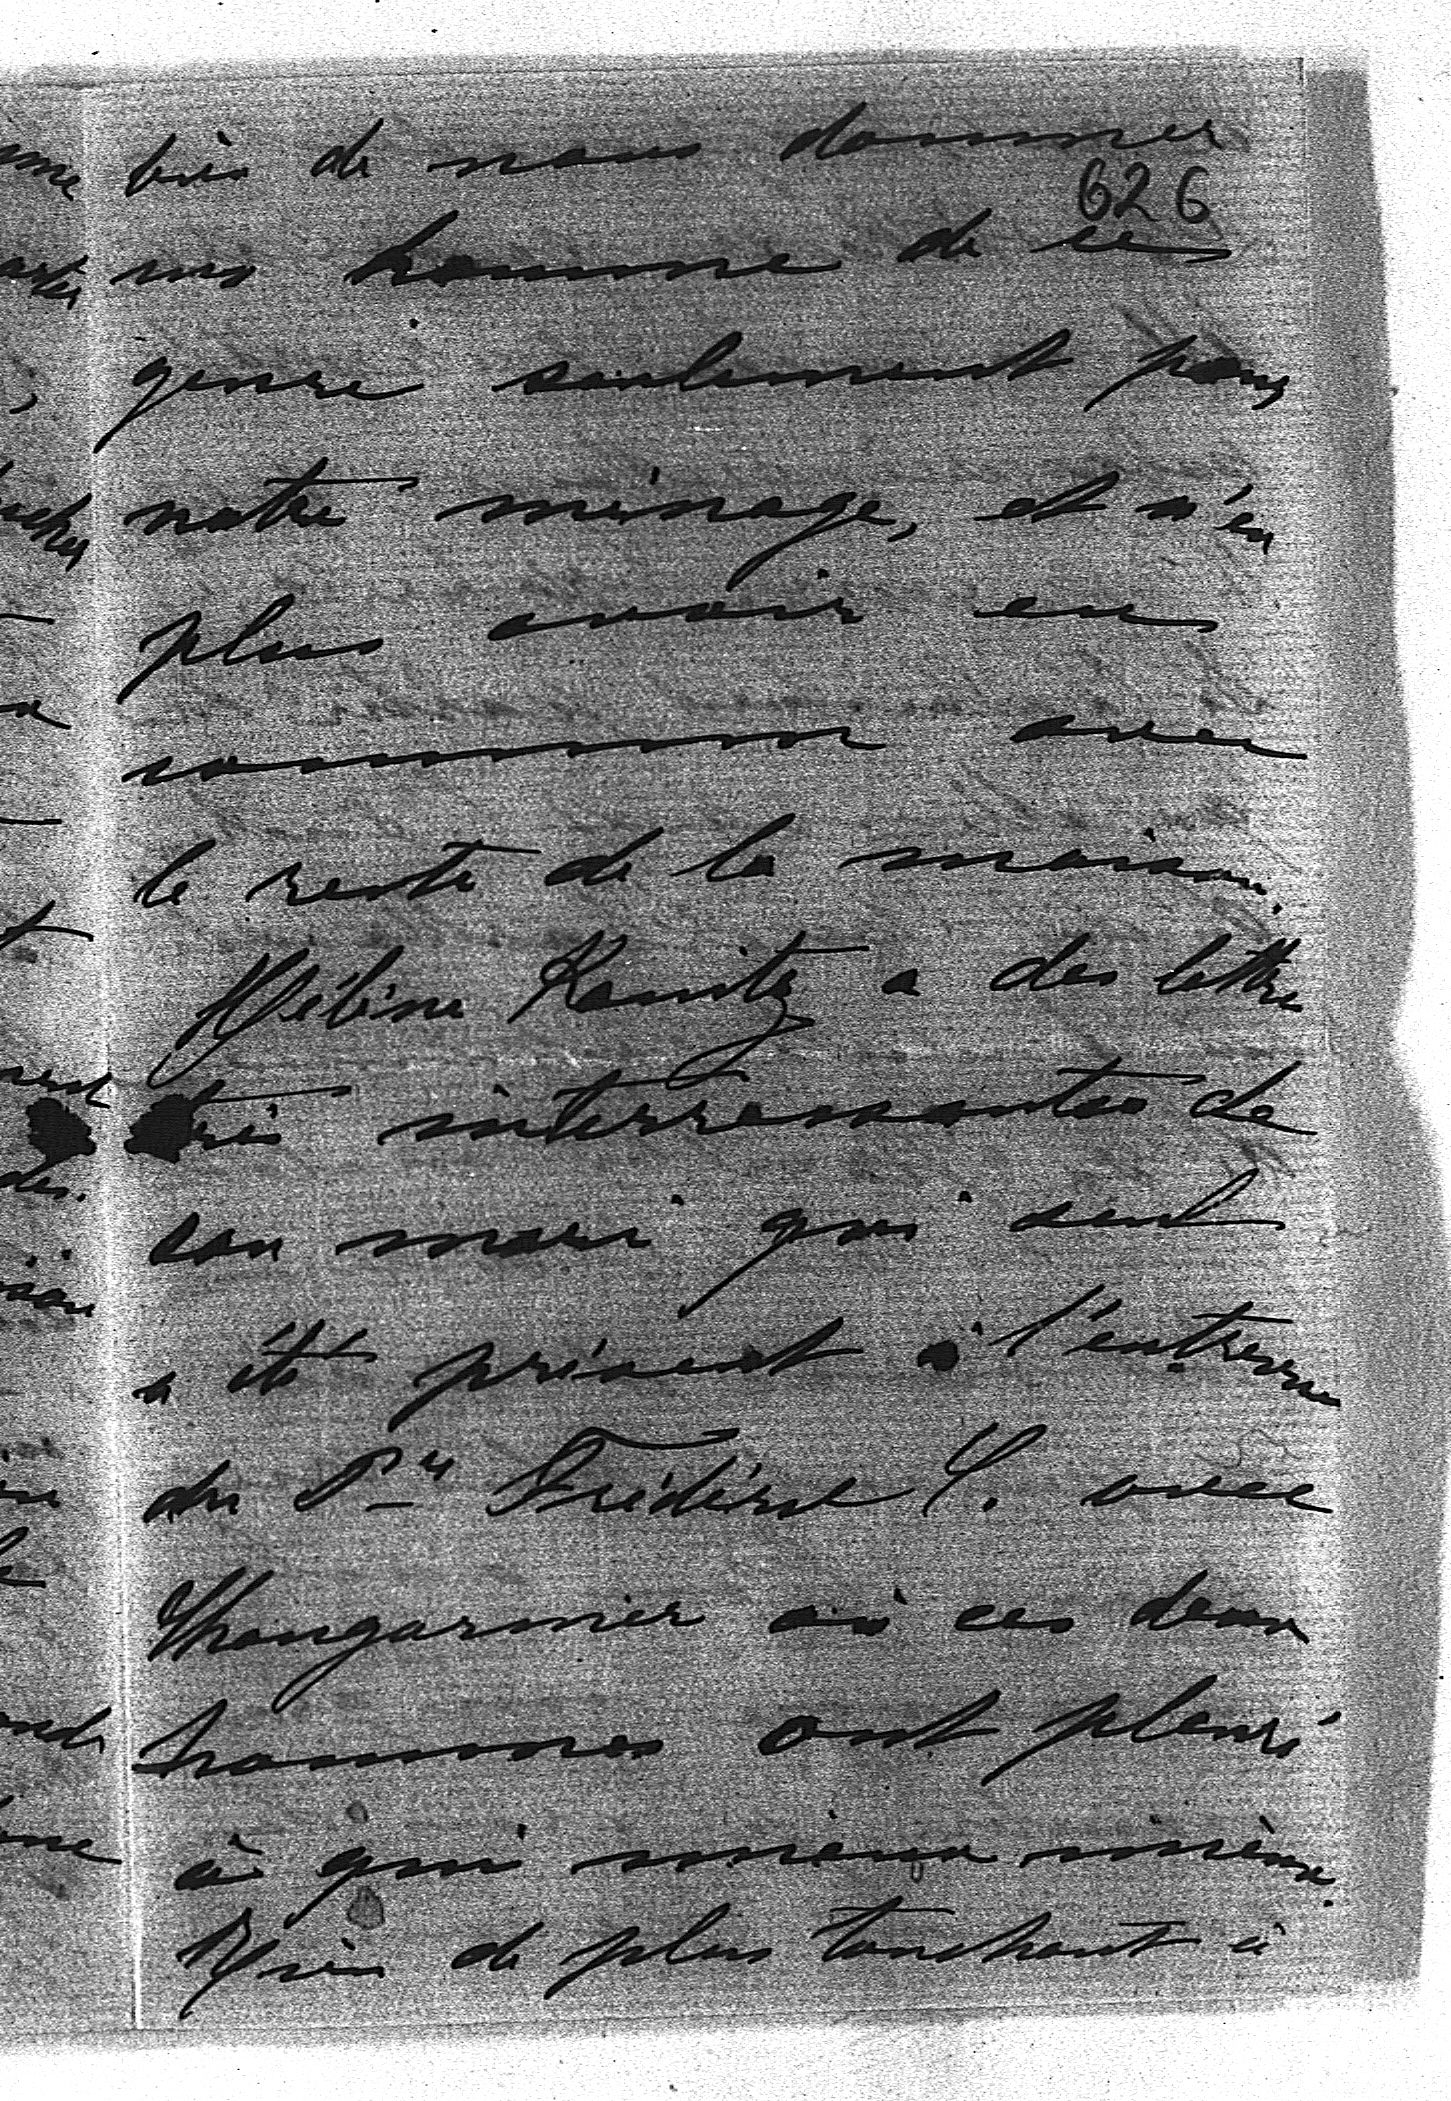 bien de nous donner
626
un homme de ce
genre seulement pour
notre ménage, et n'en
plus avoir en
commun avec
le reste de la maison.
Hélène Kanitz a des lettre
très interressantes de
son mari qui seul
a été présent à l'entrevue
du Pce Frédéric C. avec
Changarnier où ces deux
hommes ont pleuré
à qui mieux mieux.
Rien de plus touchant à